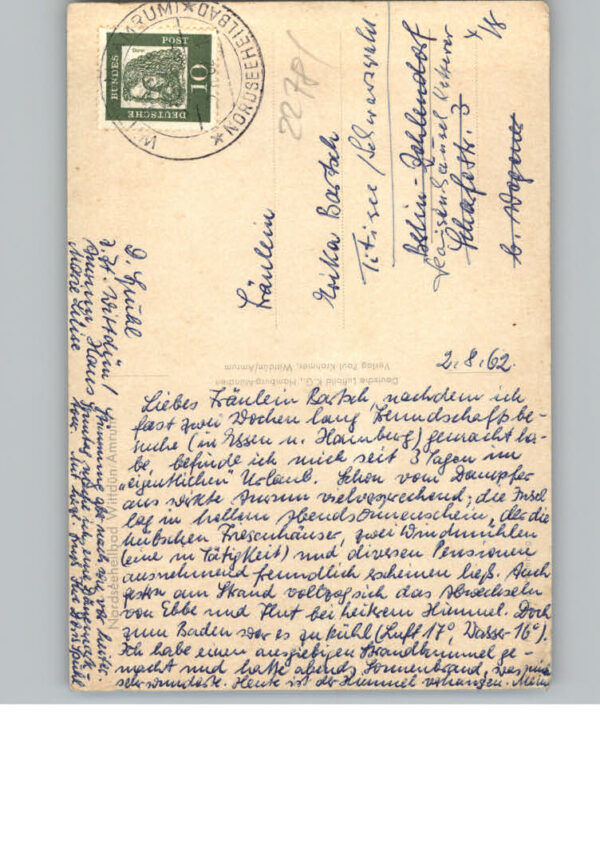 WITTDÜN (AMRUM) * NORDSEEHEILBAD *
DEUTSCHE
BUNDES
POST
10
2278/
Fräulein
Erika Bartsch
Titisee/Schwarzwald
Berlin-Dahlendorf
Schäfestr. 3
b. Wegener
2.8.62.
Deutsche Luftbild K.G., Hamburg-München
Verlag Paul Krahmer, Wittdün/Amrum
Nordseeheilbad Wittdün/Amrum
Liebes Fräulein Bartsch, nachdem ich
fast zwei Wochen lang Freundschaftsbe-
suche (in Essen u. Hamburg) gemacht ha-
be, befinde ich mich seit 3 Tagen im
"eigentlichen" Urlaub. Schon vom Dampfer
aus wirkte Amrum vielversprechend; die Insel
lag in hellem Abendsonnenschein, der die
hübschen Friesenhäuser, zwei Windmühlen
(eine in Tätigkeit) und diversen Pensionen
ausnehmend freundlich erscheinen ließ. Auch
gestern am Strand vollzog sich das Abwechseln
von Ebbe und Flut bei heiterem Himmel. Doch
zum Baden war es zu kühl (Luft 17°, Wasser 16°).
Ich habe einen ausgiebigen Strandbummel ge-
macht und hatte abends Sonnenbrand, was mich
sehr wunderte. Heute ist der Himmel verhangen. Meine
Stimmung aber nach wie vor heiter.
D. Spühl
z. Zt. Wittdün/
Amrum, Haus
Marie Luise